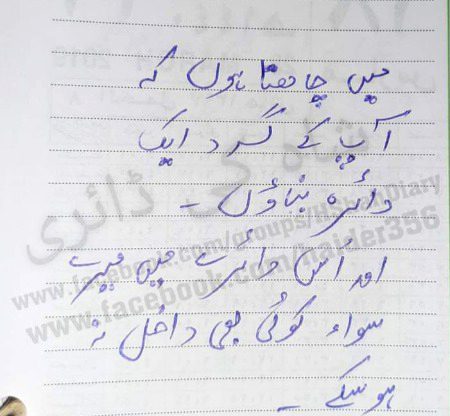 میں چاہتا ہوں کہ
آپ کے گرد ایک
دائرہ بناؤں ۔
اور اُس دائرے میں میرے
سواء کوئی بھی داخل نہ
ہو سکے ۔
کی ڈائری
www.facebook.com/groups/
www.facebook.com/haider336
2019